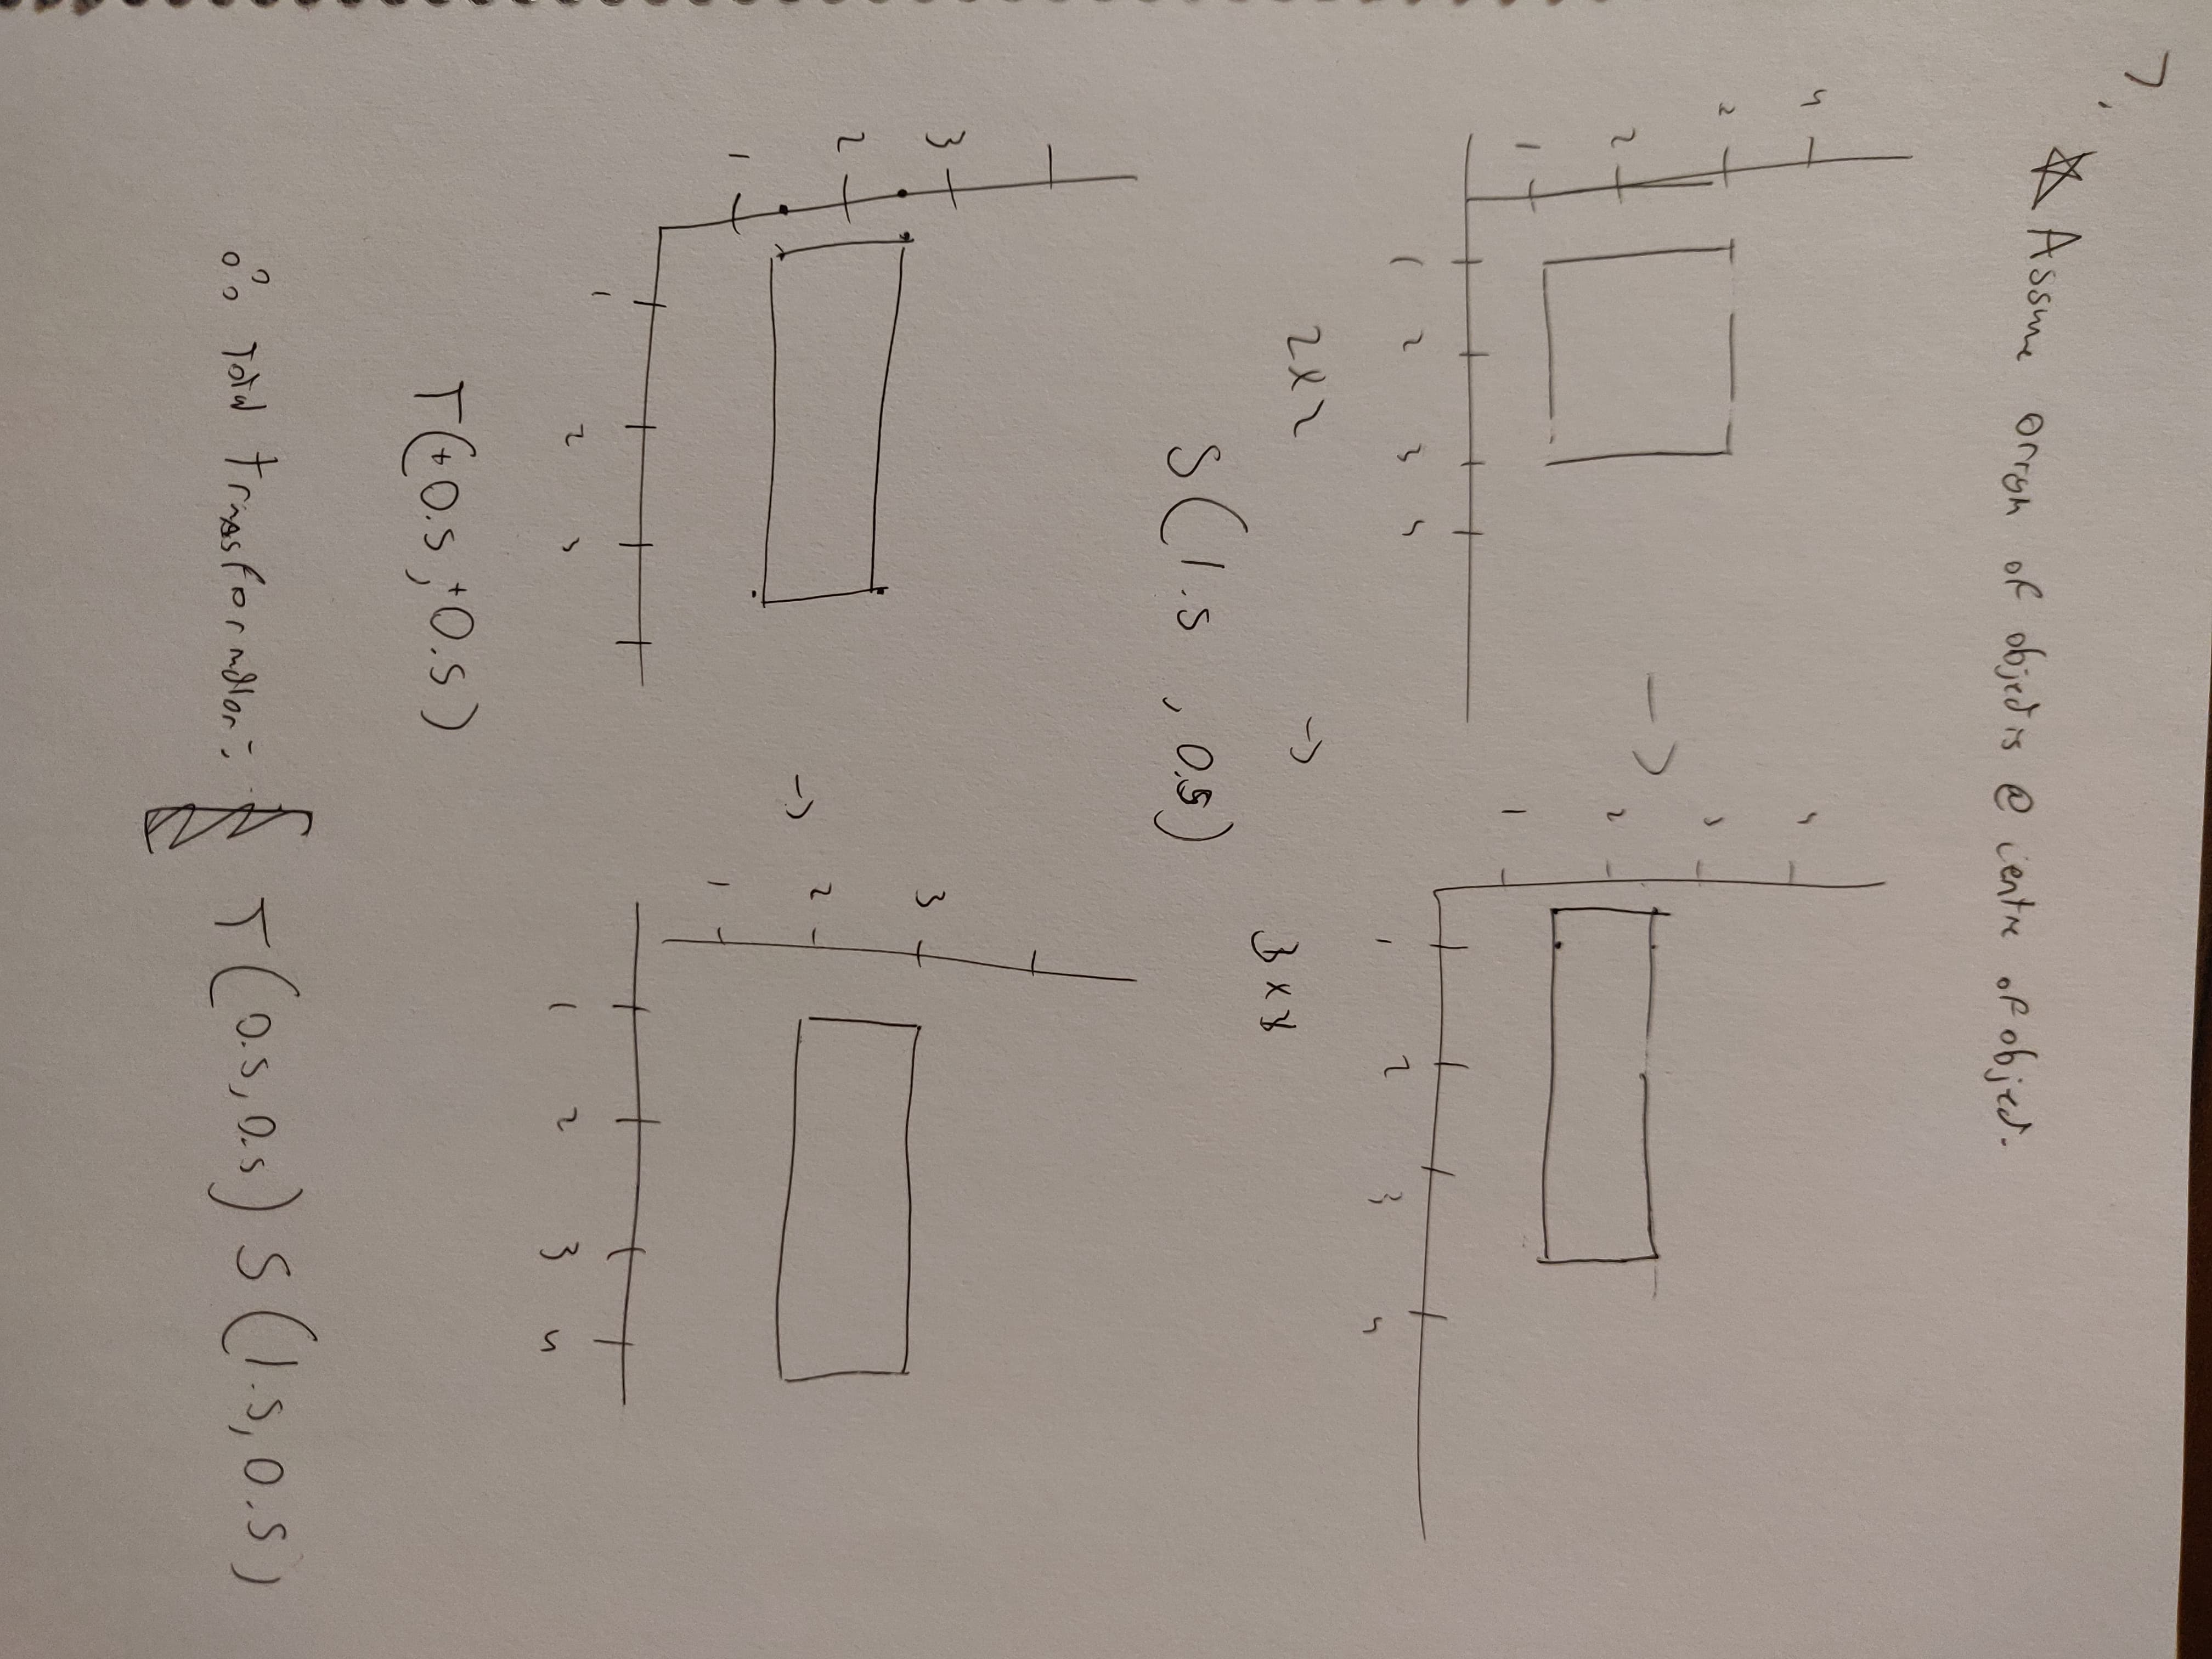 7.
☆ Assume origin of object is @ centre of object.
4
2
2
1
1 2 3 4
2x2
→
4
3
2
1
1 2 3 4
3x1
S(1.5, 0.5)
3
2
1
1 2 3
→
3
2
1
1 2 3 4
T(+0.5, +0.5)
∴ Total transformation:
T(0.5, 0.5) S(1.5, 0.5)